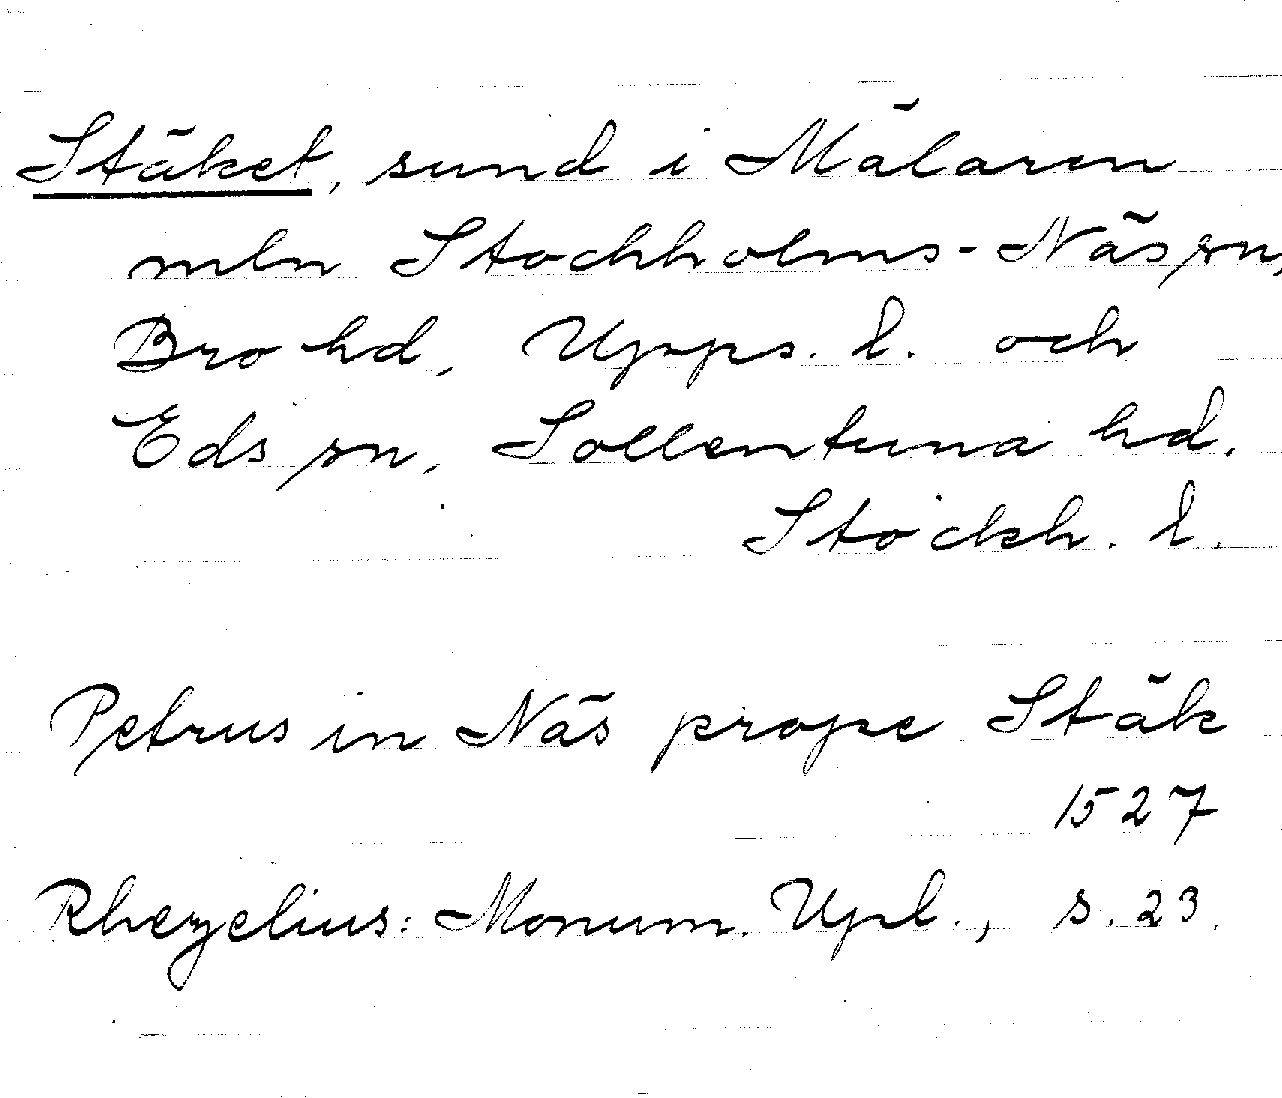 Stäket, sund i Mälaren
mln Stockholms-Näs sn,
Bro hd, Upps. l. och
Eds sn, Sollentuna hd,
Stockh. l.
Petrus in Näs prope Stäk
1527
Rhezelius: Monum. Upl., s. 23.